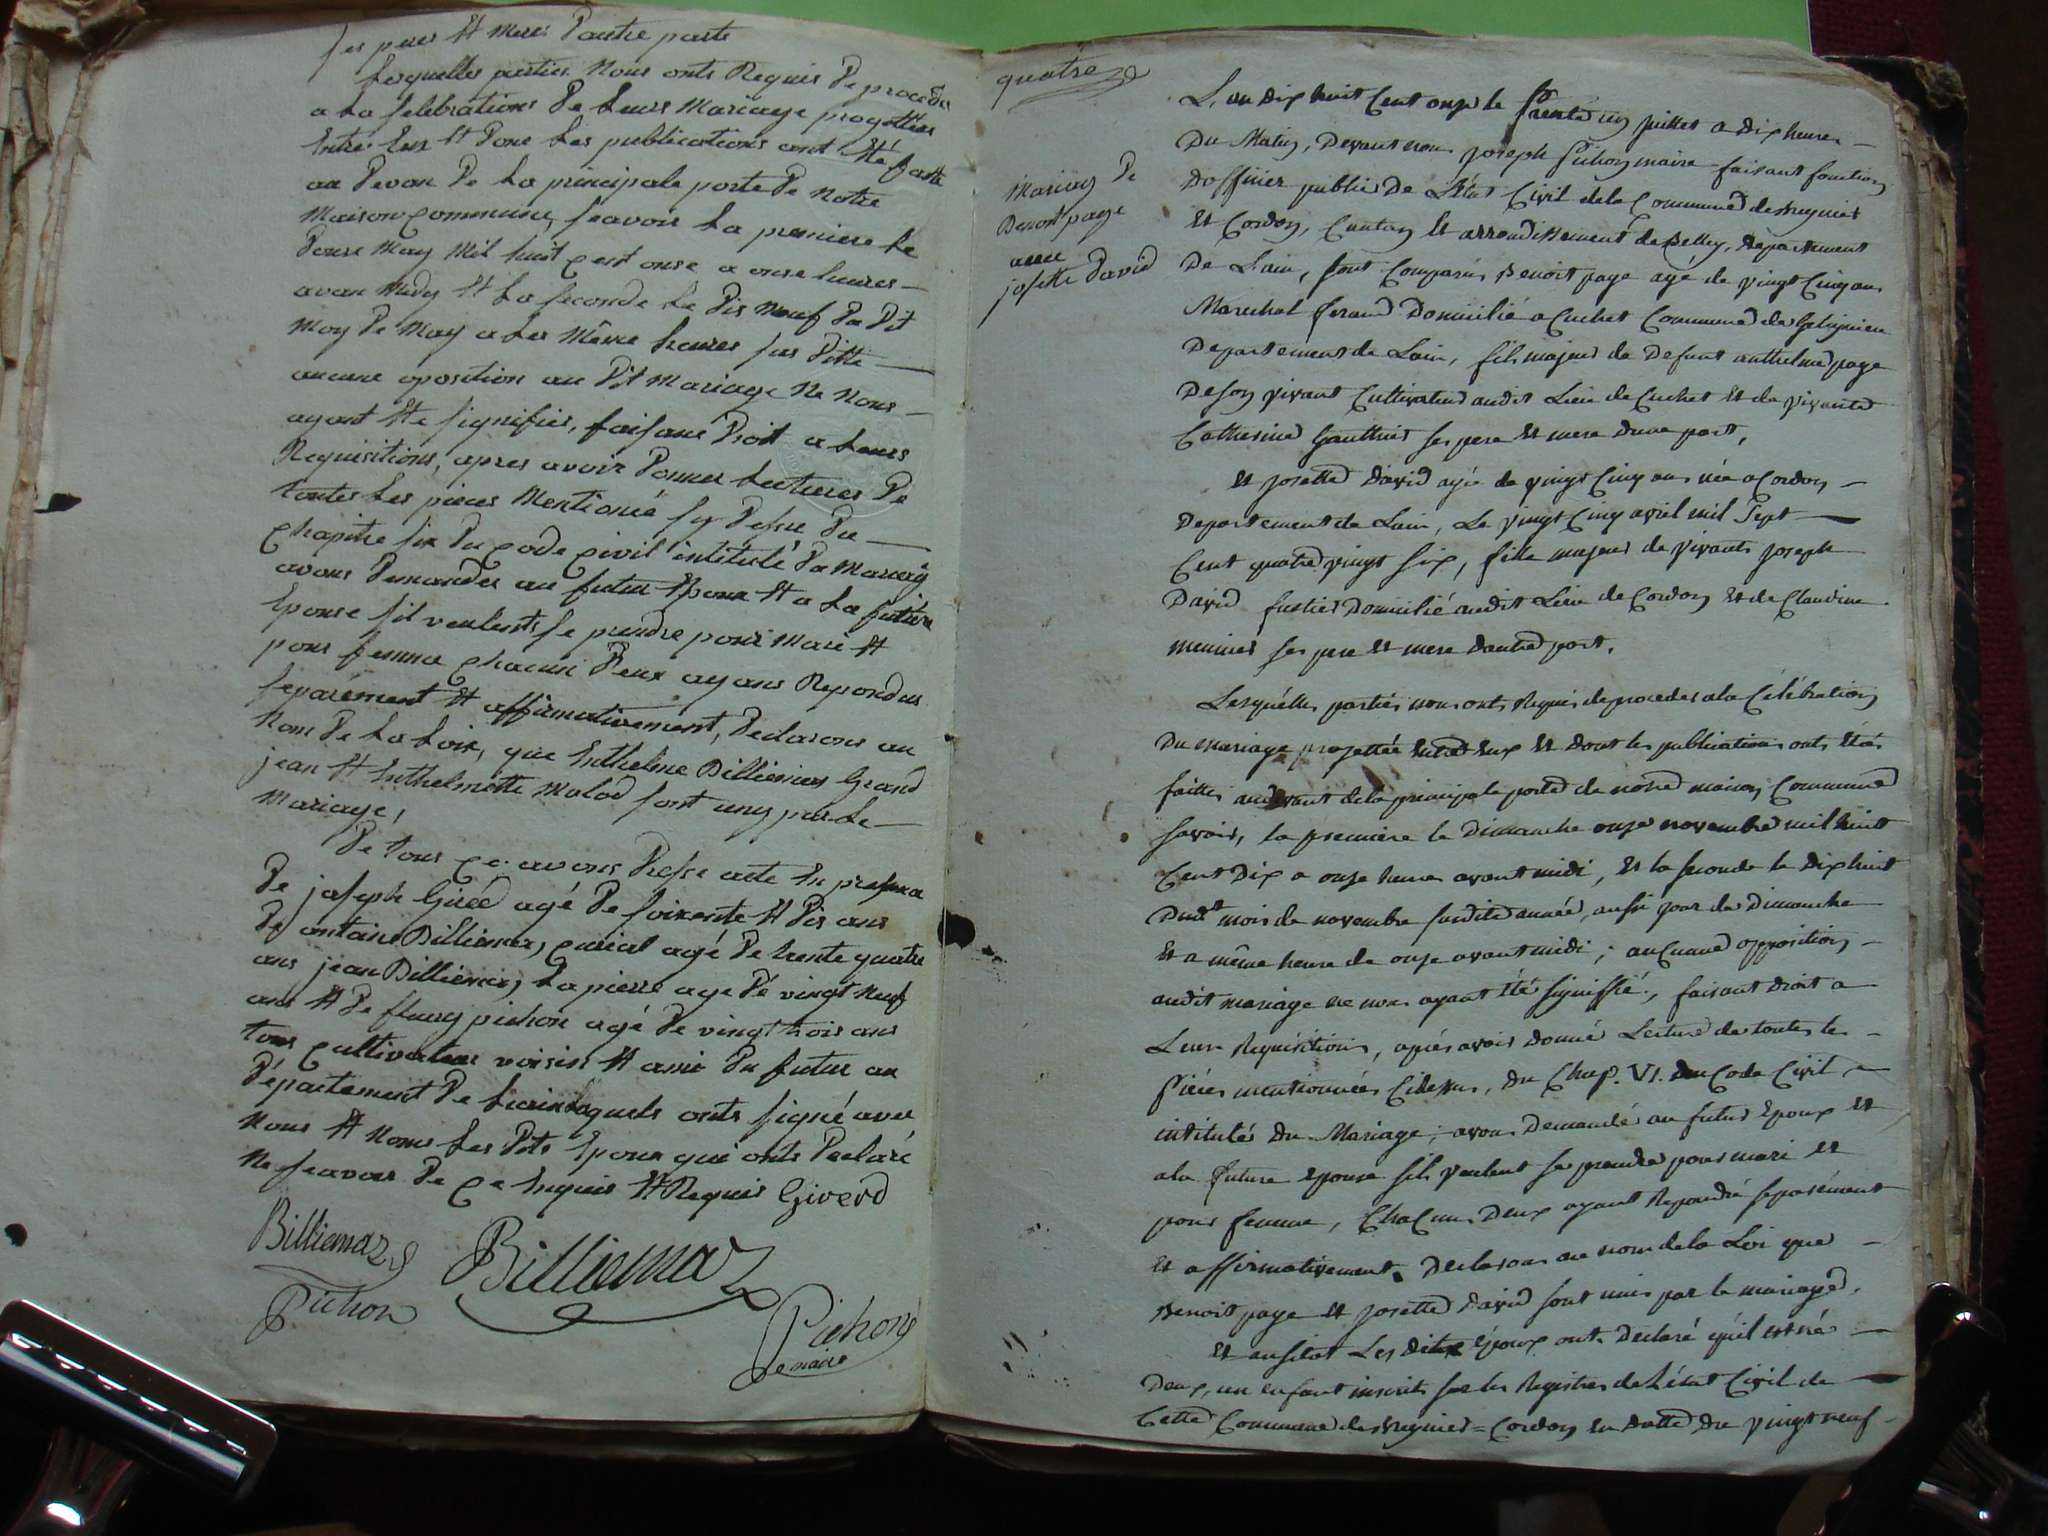 ses peres Et Meres Dautre parte
Lesquelles parties Nous onts Requis De proceder
a La selebrations De Leurs Mariage progettées
Entre Eux Et Dont Les publications ont Eté faitte
au Devan De La principale porte De Notre
Maison Commune, scavoir La premiere Le
Douse May Mil huit Cent onse a onse heures
avan Midy Et La seconde Le Dis Neuf Du Dit
Moy De May a Les Même heures sus Ditte
aucune oposition au Dit Mariage Ne Nous
ayant Ete signifies, faisant Droit a Leurs
Requisitions, apres avoir Donner Lectures De
toutes Les pieces Mentioné sy Dessu Du
Chapitre six Du Code Civil intitulé Du Mariage
avons Demander au futur Epoux Et a La future
Epouse sil veulents se prendre pour Mari Et
pour femme Chacun Deux ayans Repondus
separément Et affirmativement, Declarons au
Nom De La Loix, que Enthelme Billiemas Grand
jean Et Enthelmette Molod sont unys par Le
Mariage,
De tous Ce avons Dresse acte En presence
De joseph Giréd agé De soixente Et Dis ans
De antoine Billiemaz, Curial agé De trente quatre
ans jean Billiemaz, Lapierre agé Dé vingt Neuf
ans Et De fleury pichon agé De vingt trois ans
tous Cultivateurs voisin Et ami Du futur au
Département De Lain Lequels onts signé avec
Nous Et Nons Les Dits Epoux qui onts Declaré
Ne scavoir De Ce Enquis Et Requis Giverd
Billiemaz
Billiemaz
Pichon
Pichon
maire
quatre
Mariage De
Benoit page
avec
josette David
L'an Dix huit Cent onze le trente un juillet a dix heures
Du Matin, Devant nous joseph Pichon maire faisant fonction
Dofficier public De L'État Civil dela Commune de Bregnier
Et Cordon, Canton Et arrondissement de Belley, Departement
De L'ain, sont Comparus Benoit page agé de vingt Cinq ans
Marechal ferand Domicilié a Cuchet Commune de
Departement de Lain, fils majeur de Defunt anthelme page
De son vivant Cultivateur audit Lieu de Cuchet Et de vivante
Catherine Gauthier ses pere Et mere Dune part,
Et josette David agée de vingt Cinq ans née a Cordon
Departement de Lain, Le vingt Cinq avril mil Sept
Cent quatre vingt six, fille majeure de vivants joseph
David fustier Domicilié audit Lieu de Cordon Et de Claudine
meunier ses pere Et mere Dautre part.
Lesquelles parties nous onts Requis de proceder a la Célébration
Du mariage projettée Entre Eux Et dont les publications onts Etés
faittes audevant dela principale porte de notre maison Commune
savoir, la première le Dimanche onze novembre mil huit
Cent Dix a onze heures avant midi, Et la seconde le dix huit
Dudt mois de novembre susdite année, aussi jour de Dimanche
Et a même heure de onze avant midi; auCune opposition
audit mariage ne nous ayant Eté signiffié, faisant droit a
Leurs Requisitions, après avoir donné Lecture de toutes les
Pièces mentionnées Cidessus, du Chap. VI. du Code Civil
intitulé du Mariage; avons Demandé au futur Epoux Et
ala future Epouse sils veulent se prendre pour mari Et
pour femme, ChaCun Deux ayant Repondu séparément
Et affirmativement. Declarons au nom de la Loi que
Benoit page Et josette David sont unis par le mariage.
Et aussitot Les dits Epoux ont Declaré quil est né
Deux, un enfant inscrit sur les Registres de L'état Civil de
Cette Commune de Bregnier = Cordon En datte du vingt neuf